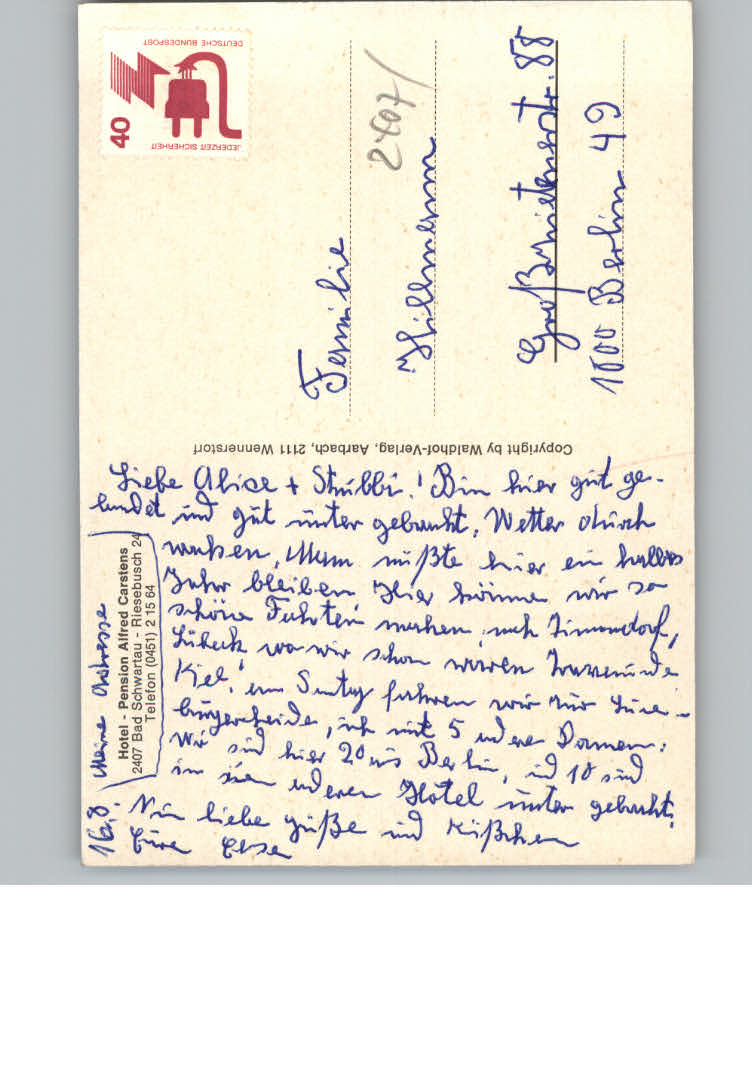 Liebe Alice + Strubbi! Bin hier gut ge-
landet und gut unter gebracht. Wetter durch
wachsen. Mann müßte hier ein halbes
Jahr bleiben Hier können wir so
schöne Fahrten machen, nach
Lübeck wo wir schon waren Travemünde
Kiel! am Sontag fahren wir zur Lüne-
burgerheide, ich mit 5 anderen Damen.
Wir sind hier 20 aus Berlin, und 10 sind
in einen anderen Hotel unter gebracht.
Nun liebe grüße und Küßchen
Eure Elsa
16.8. Meine Adresse
Hotel - Pension Alfred Carstens
2407 Bad Schwartau - Riesebusch 24
Telefon (0451) 2 15 64
Copyright by Waldhof-Verlag, Aarbach, 2111 Wennerstorf
Familie
Hillmann
2407/
Großzietenerstr. 88
1000 Berlin 49
DEUTSCHE BUNDESPOST
40
JEDERZEIT SICHERHEIT